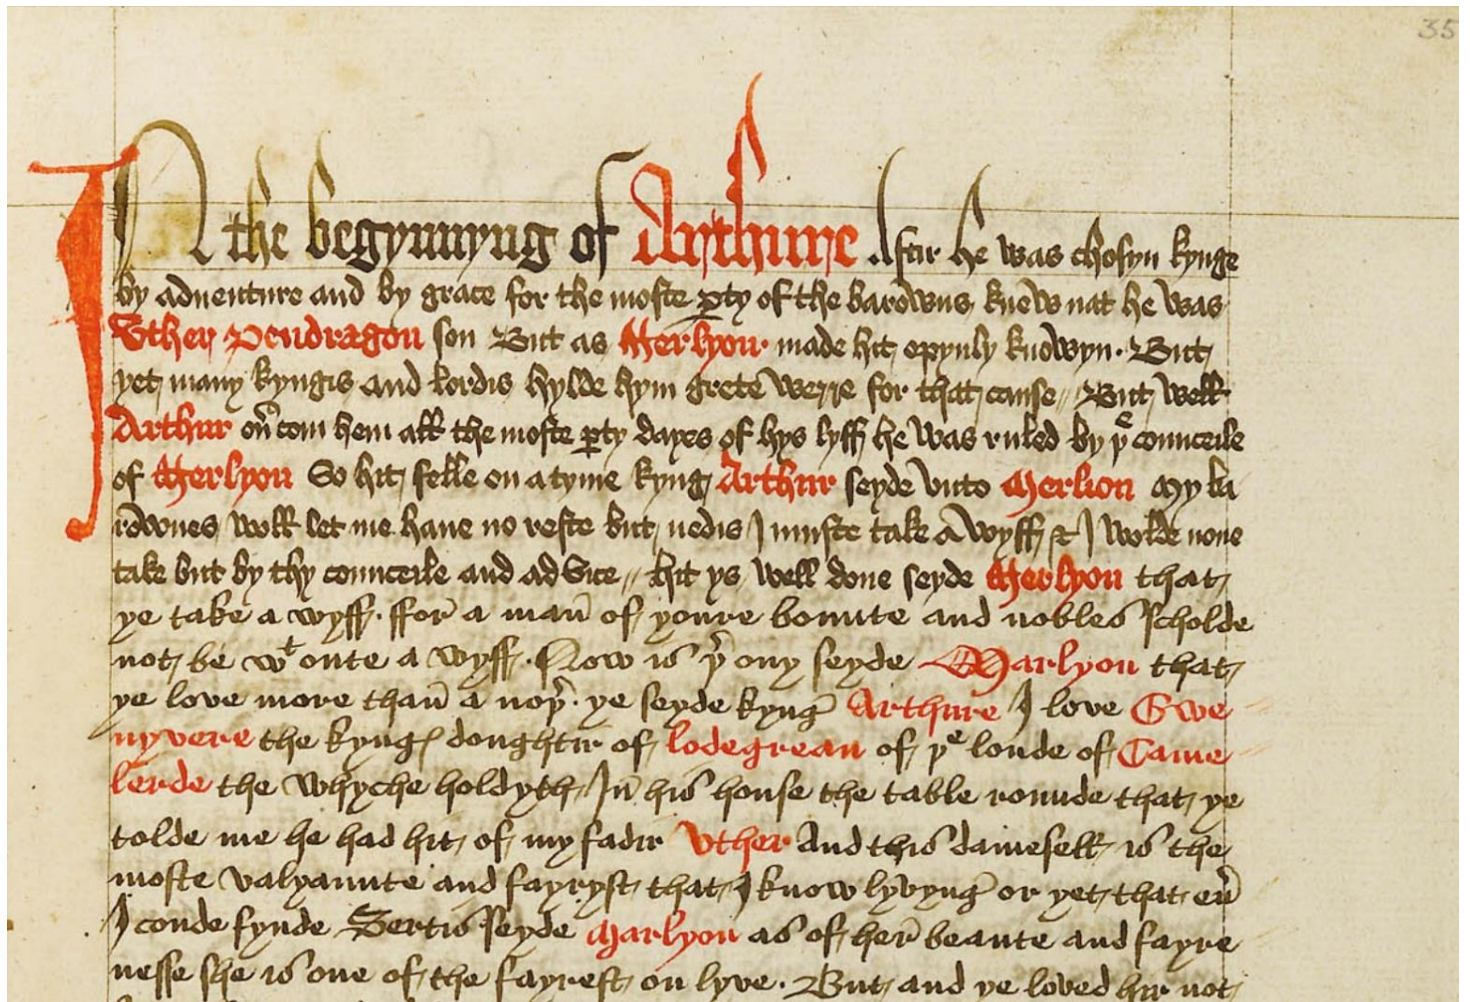 35
In the begynnyng of Arthure Aftir he was chosyn kynge
by adventure and by grace for the moste ꝑty of the barowns knew nat he was
Uther Pendragon son But as Merlyon made hit opynly knowyn. But
yet many kyngis and lordis hylde hym grete werre for that cause // But well
Arthur oũcom hem all the moste ꝑty dayes of hys lyff he was ruled by þᵉ counceile
of Merlyon So hit felle on a tyme kyng Arthur seyde unto Merlion My ba
rownes woll let me have no reste but nedis I muste take a wyff & I wolde none
take but by thy counceile and advice // hit ys well done seyde Merlyon that
ye take a wyff. ffor a man̄ of youre bounte and nobles scholde
not be wᵗoute a wyff. Now is þ̉ ony seyde Marlyon that
ye love more than̄ a noþ̉. ye seyde kyng Arthure I love Gwe
nyvere the kyngꝭ doughtir of lodegrean of þᵉ londe of Came
lerde the whyche holdyth In̄ his house the table rounde that ye
tolde me he had hit of my fadir Uther And this damesell is the
moste valyaunte and fayryst that I know lyvyng or yet that eũ
I coude fynde Sertis seyde Marlyon as of her beaute and fayre
nesse she is one of the fayrest on lyve. But and ye loved hir not